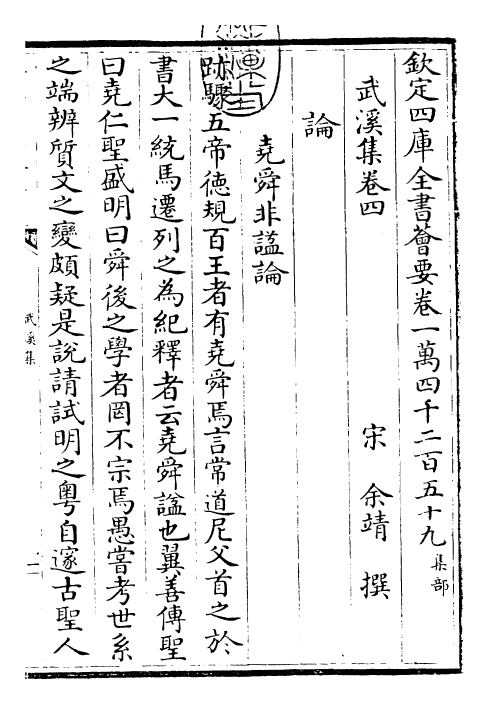 欽定四庫全書薈要卷一萬四千二百五十九集部
武溪集卷四
宋 余靖 撰
論
堯舜非諡論
跡驟五帝德規百王者有堯舜焉言常道尼父首之於
書大一統馬遷列之為紀釋者云堯舜諡也翼善傳聖
曰堯仁聖盛明曰舜後之學者罔不宗焉愚嘗考世系
之端辨質文之變頗疑是說請試明之粵自邃古聖人
武溪集
一